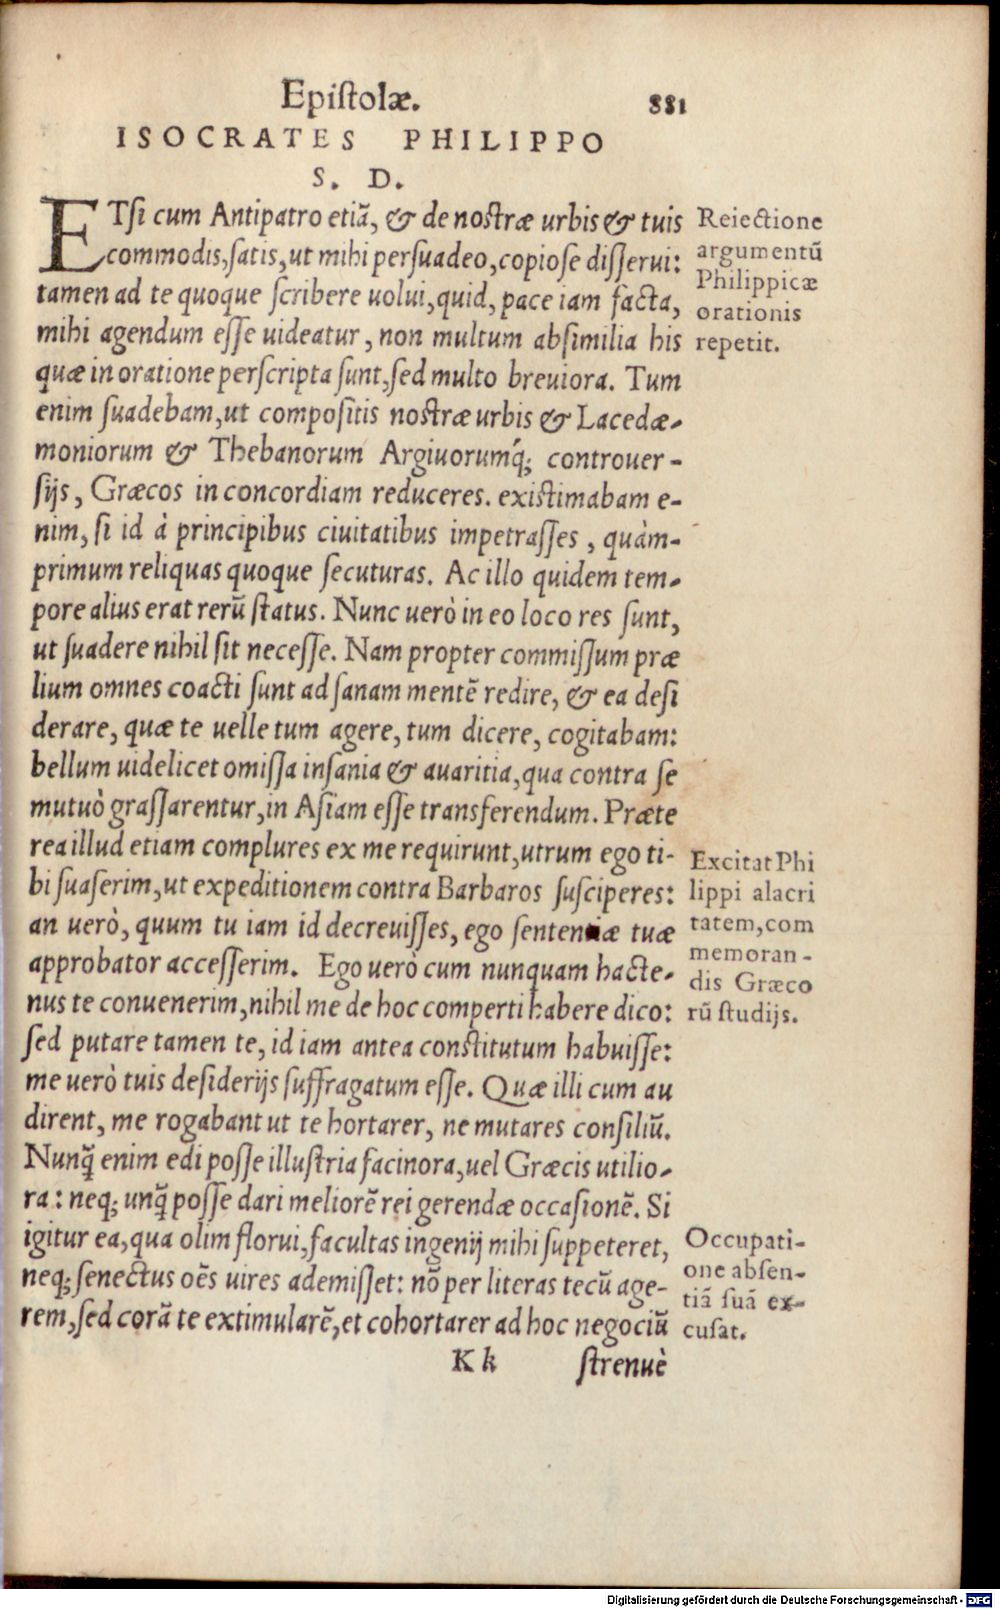 Epistolæ. 881
ISOCRATES PHILIPPO
S. D.
ETsi cum Antipatro etiã, & de nostræ urbis & tuis
commodis, satis, ut mihi persuadeo, copiose disserui:
tamen ad te quoque scribere uolui, quid, pace iam facta,
mihi agendum esse uideatur, non multum absimilia his
quæ in oratione perscripta sunt, sed multo breuiora. Tum
enim suadebam, ut compositis nostræ urbis & Lacedæ-
moniorum & Thebanorum Argiuorumq́; controuer-
sijs, Græcos in concordiam reduceres. existimabam e-
nim, si id à principibus ciuitatibus impetrasses, quàm-
primum reliquas quoque secuturas. Ac illo quidem tem-
pore alius erat rerũ status. Nunc uerò in eo loco res sunt,
ut suadere nihil sit necesse. Nam propter commissum præ
lium omnes coacti sunt ad sanam mentẽ redire, & ea desi
derare, quæ te uelle tum agere, tum dicere, cogitabam:
bellum uidelicet omissa insania & auaritia, qua contra se
mutuò grassarentur, in Asiam esse transferendum. Præte
rea illud etiam complures ex me requirunt, utrum ego ti-
bi suaserim, ut expeditionem contra Barbaros susciperes:
an uerò, quum tu iam id decreuisses, ego sententiæ tuæ
approbator accesserim. Ego uerò cum nunquam hacte-
nus te conuenerim, nihil me de hoc comperti habere dico:
sed putare tamen te, id iam antea constitutum habuisse:
me uerò tuis desiderijs suffragatum esse. Quæ illi cum au
dirent, me rogabant ut te hortarer, ne mutares consiliũ.
Nunq̃ enim edi posse illustria facinora, uel Græcis utilio-
ra: neq; unq̃ posse dari meliorẽ rei gerendæ occasionẽ. Si
igitur ea, qua olim florui, facultas ingenij mihi suppeteret,
neq; senectus oẽs uires ademisset: nõ per literas tecũ age-
rem, sed corã te extimularẽ, et cohortarer ad hoc negociũ
Kk strenuè
Reiectione
argumentũ
Philippicæ
orationis
repetit.
Excitat Phi
lippi alacri
tatem, com
memoran-
dis Græco
rũ studijs.
Occupati-
one absen-
tiã suã ex-
cusat.
Digitalisierung gefördert durch die Deutsche Forschungsgemeinschaft - DFG